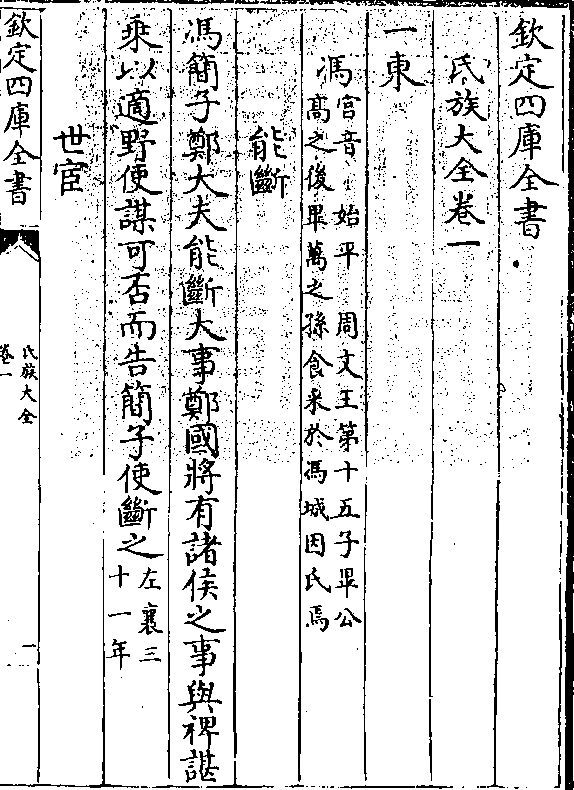 欽定四庫全書
氏族大全卷一
一東
馮宫音 始平 周文王第十五子畢公
高之後畢萬之孫食采於馮城因氏焉
能斷
馮簡子鄭大夫能斷大事鄭國將有諸侯之事與裨諶
乘以適野使謀可否而告簡子使斷之左襄三
十一年
世宦
欽定四庫全書
氏族大全
卷一
一